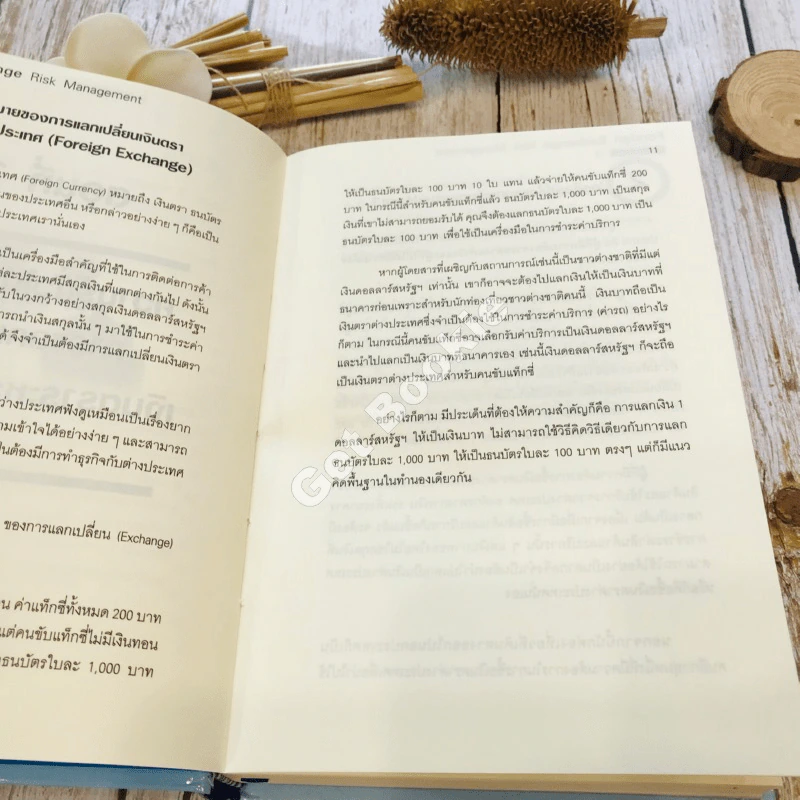 age Risk Management
มายของการแลกเปลี่ยนเงินตรา
ประเทศ (Foreign Exchange)
ทศ (Foreign Currency) หมายถึง เงินตรา ธนบัตร
นของประเทศอื่น หรือกล่าวอย่างง่าย ๆ ก็คือเป็น
ประเทศเรานั่นเอง
เป็นเครื่องมือสำคัญที่ใช้ในการติดต่อการค้า
ต่ละประเทศมีสกุลเงินที่แตกต่างกันไป ดังนั้น
รับในวงกว้างอย่างสกุลเงินดอลลาร์สหรัฐฯ
ารถนำเงินสกุลนั้น ๆ มาใช้ในการชำระค่า
ด้ จึงจำเป็นต้องมีการแลกเปลี่ยนเงินตรา
ว่างประเทศฟังดูเหมือนเป็นเรื่องยาก
ามเข้าใจได้อย่างง่าย ๆ และสามารถ
ป็นต้องมีการทำธุรกิจกับต่างประเทศ
ของการแลกเปลี่ยน (Exchange)
น ค่าแท็กซี่ทั้งหมด 200 บาท
แต่คนขับแท็กซี่ไม่มีเงินทอน
ธนบัตรใบละ 1,000 บาท
11
ให้เป็นธนบัตรใบละ 100 บาท 10 ใบ แทน แล้วจ่ายให้คนขับแท็กซี่ 200
บาท ในกรณีนี้สำหรับคนขับแท็กซี่แล้ว ธนบัตรใบละ 1,000 บาท เป็นสกุล
เงินที่เขาไม่สามารถยอมรับได้ คุณจึงต้องแลกธนบัตรใบละ 1,000 บาท เป็น
ธนบัตรใบละ 100 บาท เพื่อใช้เป็นเครื่องมือในการชำระค่าบริการ
หากผู้โดยสารที่เผชิญกับสถานการณ์เช่นนี้เป็นชาวต่างชาติที่มีแต่
เงินดอลลาร์สหรัฐฯ เท่านั้น เขาก็อาจจะต้องไปแลกเงินให้เป็นเงินบาทที่
ธนาคารก่อนเพราะสำหรับนักท่องเที่ยวชาวต่างชาติคนนี้ เงินบาทถือเป็น
เงินตราต่างประเทศซึ่งจำเป็นต้องใช้ในการชำระค่าบริการ (ค่ารถ) อย่างไร
ก็ตาม ในกรณีนี้คนขับแท็กซี่อาจเลือกรับค่าบริการเป็นเงินดอลลาร์สหรัฐฯ
และนำไปแลกเป็นเงินบาทที่ธนาคารเอง เช่นนี้เงินดอลลาร์สหรัฐฯ ก็จะถือ
เป็นเงินตราต่างประเทศสำหรับคนขับแท็กซี่
อย่างไรก็ตาม มีประเด็นที่ต้องให้ความสำคัญก็คือ การแลกเงิน 1
ดอลลาร์สหรัฐฯ ให้เป็นเงินบาท ไม่สามารถใช้วิธีคิดวิธีเดียวกับการแลก
ธนบัตรใบละ 1,000 บาท ให้เป็นธนบัตรใบละ 100 บาท ตรงๆ แต่ก็มีแนว
คิดพื้นฐานในทำนองเดียวกัน
Get Bookie